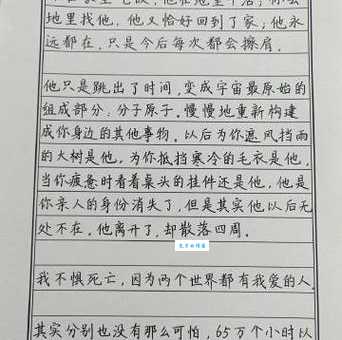 地里找他，他又恰好回到了家；他永
远都在，只是今后每次都会擦肩。
他只是跳出了时间，变成宇宙最原始的
组成部分：分子原子。慢慢地重新构建
成你身边的其他事物。以后为你遮风挡雨
的大树是他，为你抵挡寒冷的毛衣是他，
当你疲惫时看着桌头的挂件还是他，他是
你亲人的身份消失了，但是其实他以后无
处不在。他离开了，却散落四周。
我不惧死亡，因为两个世界都有我爱的人。
其实分别也没有那么可怕，65万个小时以